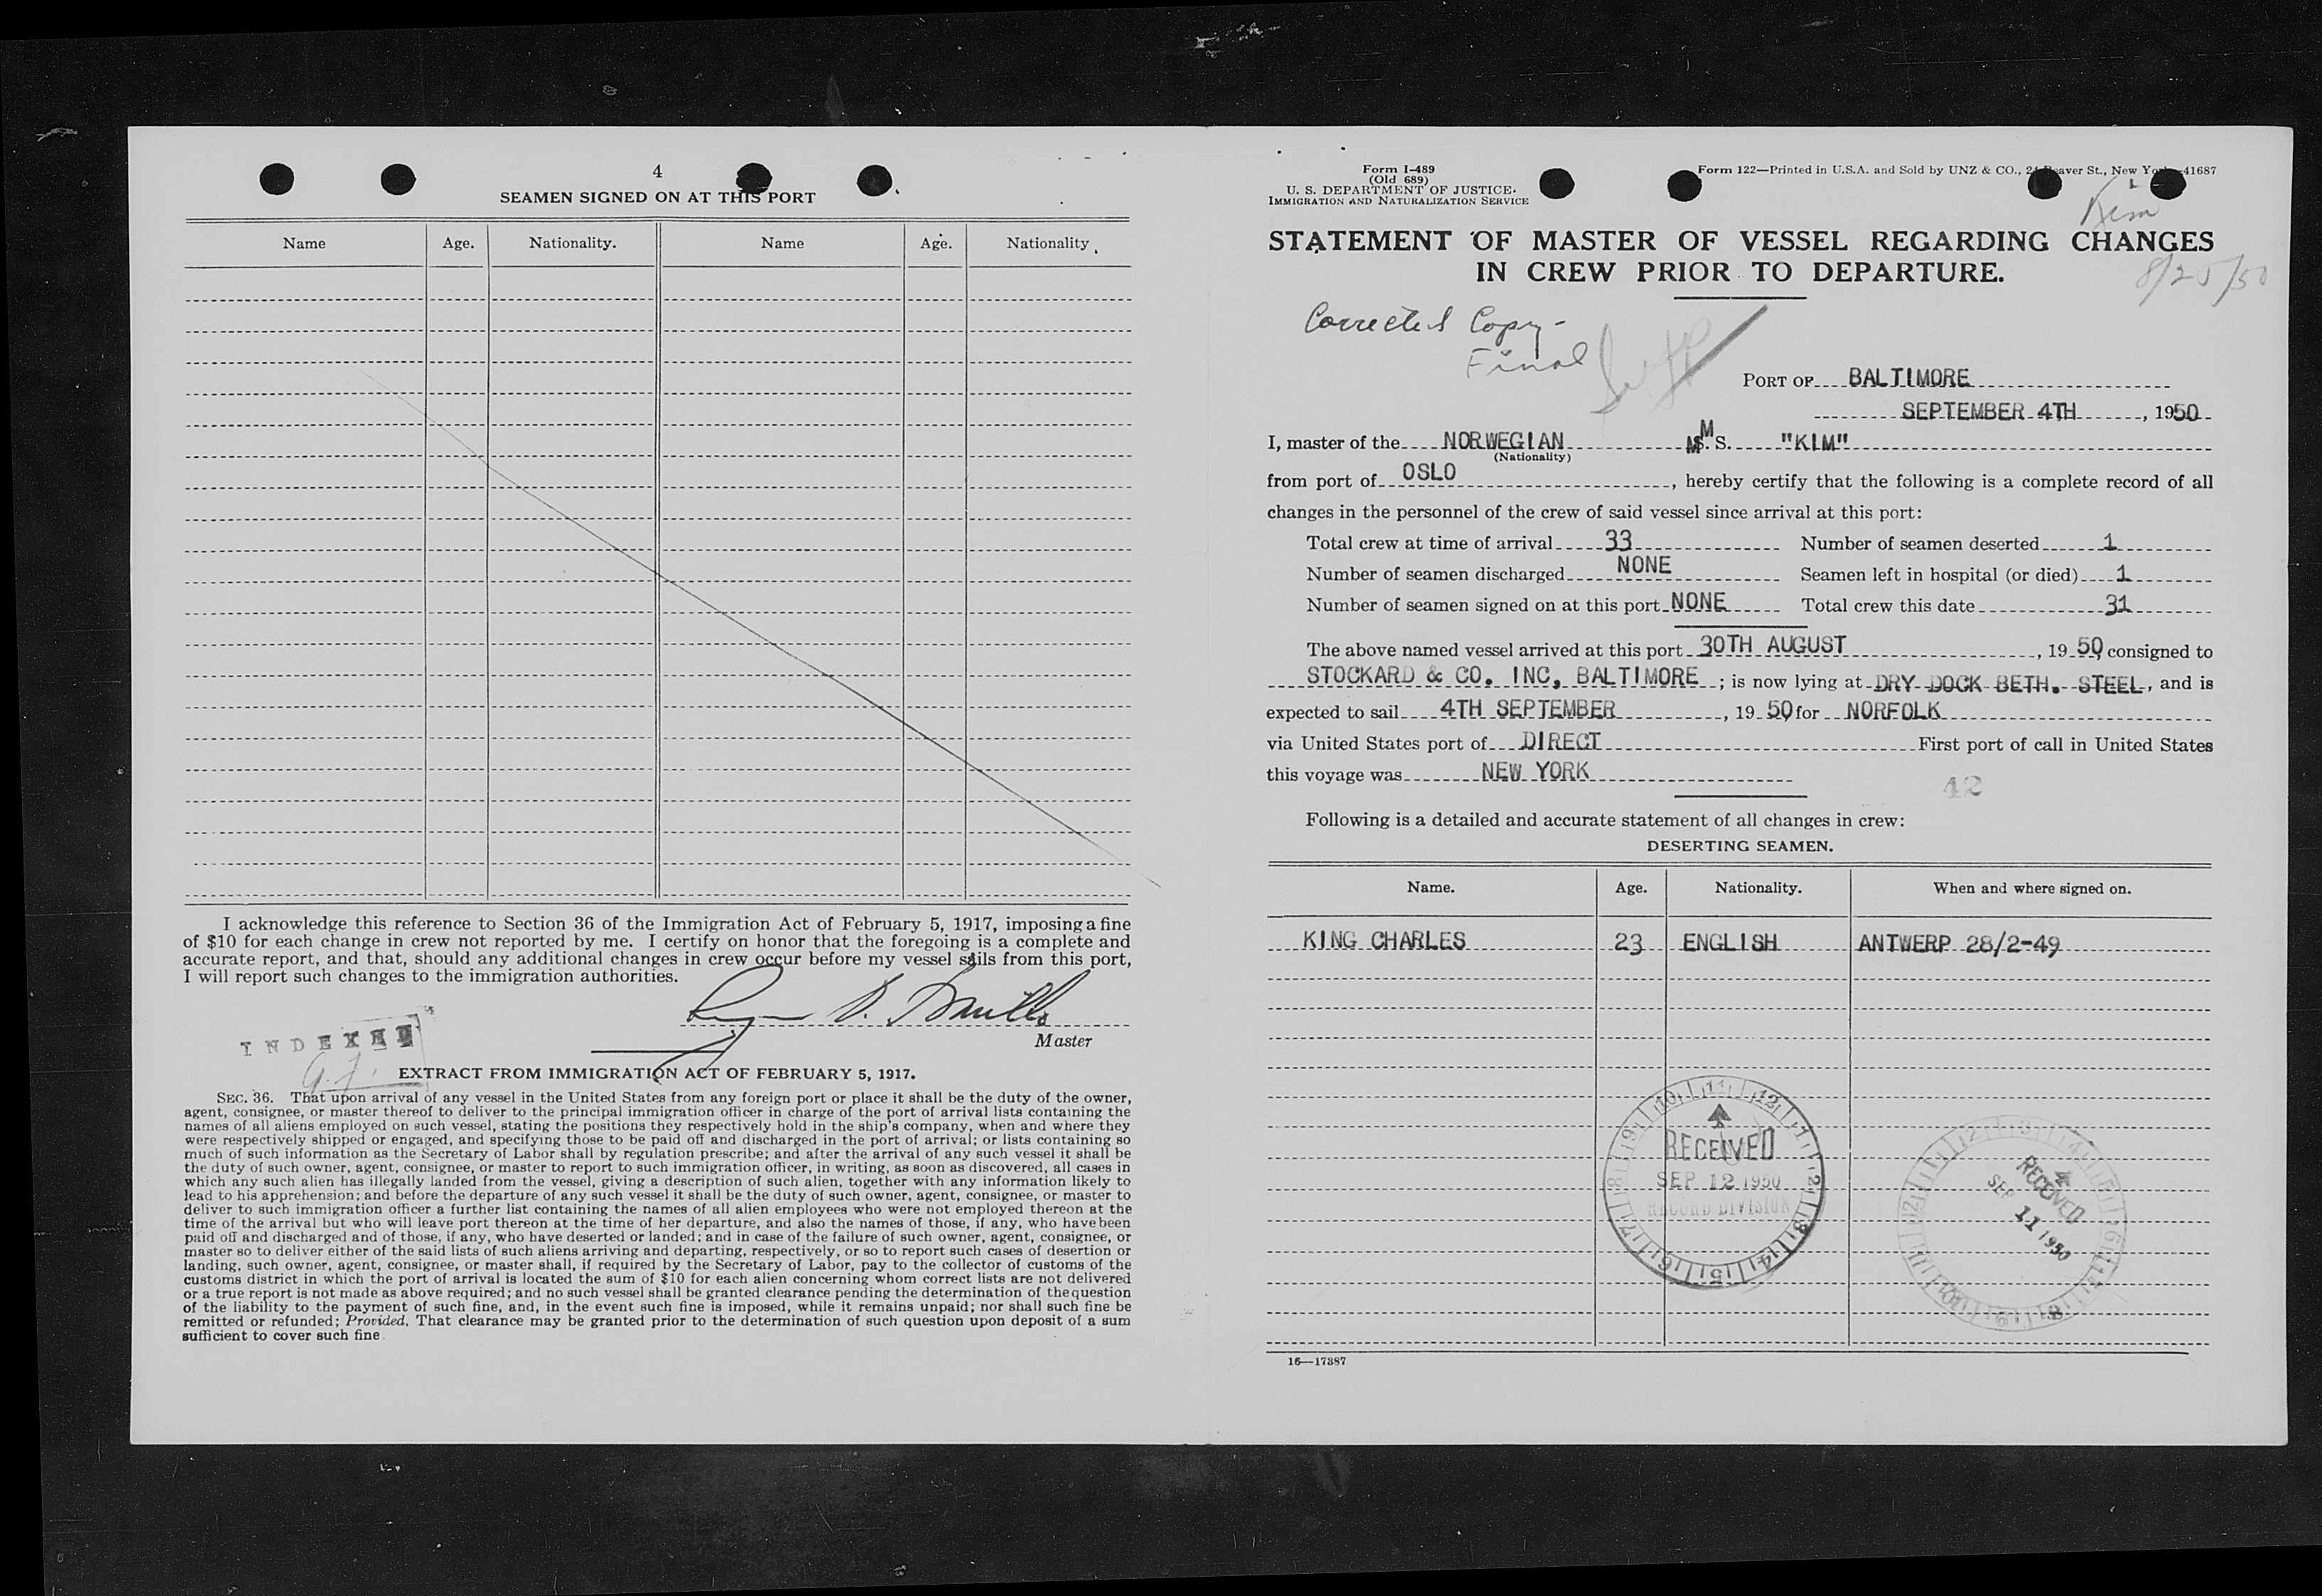 4
SEAMEN SIGNED ON AT THIS PORT
Name Age. Nationality. Name Age. Nationality
I acknowledge this reference to Section 36 of the Immigration Act of February 5, 1917, imposing a fine
of $10 for each change in crew not reported by me. I certify on honor that the foregoing is a complete and
accurate report, and that, should any additional changes in crew occur before my vessel sails from this port,
I will report such changes to the immigration authorities.
Master
INDEXED
EXTRACT FROM IMMIGRATION ACT OF FEBRUARY 5, 1917.
SEC. 36. That upon arrival of any vessel in the United States from any foreign port or place it shall be the duty of the owner,
agent, consignee, or master thereof to deliver to the principal immigration officer in charge of the port of arrival lists containing the
names of all aliens employed on such vessel, stating the positions they respectively hold in the ship's company, when and where they
were respectively shipped or engaged, and specifying those to be paid off and discharged in the port of arrival; or lists containing so
much of such information as the Secretary of Labor shall by regulation prescribe; and after the arrival of any such vessel it shall be
the duty of such owner, agent, consignee, or master to report to such immigration officer, in writing, as soon as discovered, all cases in
which any such alien has illegally landed from the vessel, giving a description of such alien, together with any information likely to
lead to his apprehension; and before the departure of any such vessel it shall be the duty of such owner, agent, consignee, or master to
deliver to such immigration officer a further list containing the names of all alien employees who were not employed thereon at the
time of the arrival but who will leave port thereon at the time of her departure, and also the names of those, if any, who have been
paid off and discharged and of those, if any, who have deserted or landed; and in case of the failure of such owner, agent, consignee, or
master so to deliver either of the said lists of such aliens arriving and departing, respectively, or so to report such cases of desertion or
landing, such owner, agent, consignee, or master shall, if required by the Secretary of Labor, pay to the collector of customs of the
customs district in which the port of arrival is located the sum of $10 for each alien concerning whom correct lists are not delivered
or a true report is not made as above required; and no such vessel shall be granted clearance pending the determination of the question
of the liability to the payment of such fine, and, in the event such fine is imposed, while it remains unpaid; nor shall such fine be
remitted or refunded; Provided, That clearance may be granted prior to the determination of such question upon deposit of a sum
sufficient to cover such fine.
Form I-489
(Old 689)
U. S. DEPARTMENT OF JUSTICE.
IMMIGRATION AND NATURALIZATION SERVICE
Form 122—Printed in U.S.A. and Sold by UNZ & CO., 24 Beaver St., New York—41687
Kim
STATEMENT OF MASTER OF VESSEL REGARDING CHANGES
IN CREW PRIOR TO DEPARTURE.
8/25/50
Corrected Copy -
Final
PORT OF BALTIMORE
SEPTEMBER 4TH, 1950
I, master of the NORWEGIAN M. S. "KIM"
(Nationality)
from port of OSLO, hereby certify that the following is a complete record of all
changes in the personnel of the crew of said vessel since arrival at this port:
Total crew at time of arrival 33 Number of seamen deserted 1
Number of seamen discharged NONE Seamen left in hospital (or died) 1
Number of seamen signed on at this port NONE Total crew this date 31
The above named vessel arrived at this port 30TH AUGUST, 19 50 consigned to
STOCKARD & CO. INC, BALTIMORE; is now lying at DRY DOCK BETH. STEEL, and is
expected to sail 4TH SEPTEMBER, 19 50 for NORFOLK
via United States port of DIRECT First port of call in United States
this voyage was NEW YORK
42
Following is a detailed and accurate statement of all changes in crew:
DESERTING SEAMEN.
Name. Age. Nationality. When and where signed on.
KING CHARLES 23 ENGLISH ANTWERP 28/2-49
RECEIVED
SEP 12 1950
RECORD DIVISION
RECEIVED
SEP 11 1950
16—17387